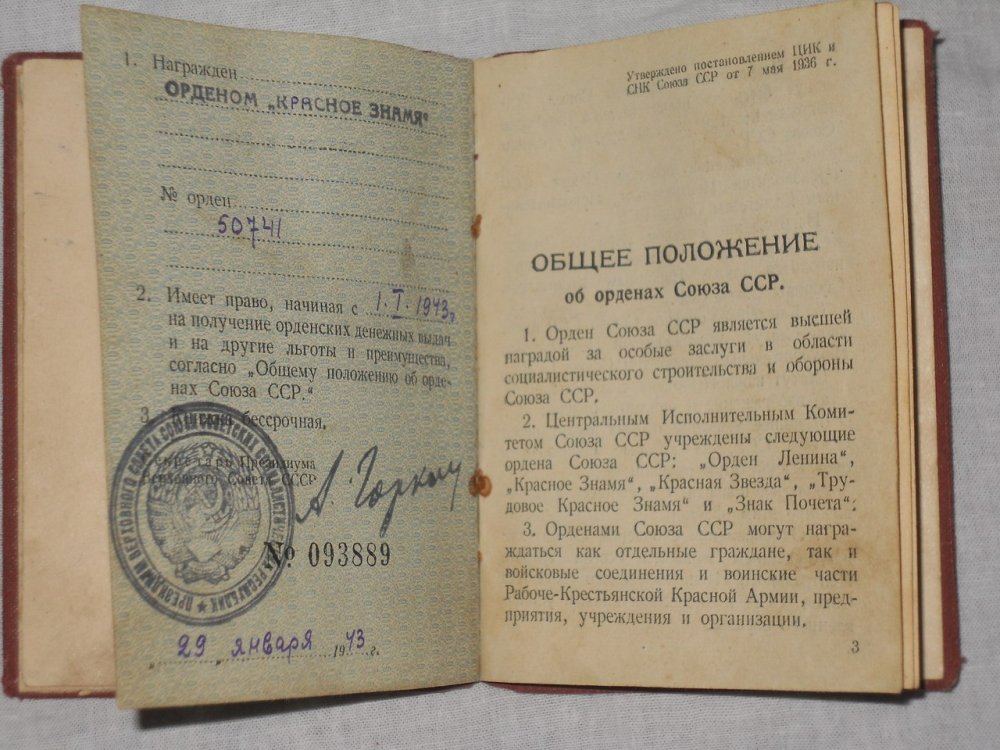 1. Награжден
ОРДЕНОМ „КРАСНОЕ ЗНАМЯ“
№ орден
50741
2. Имеет право, начиная с 1.I.1943г.
на получение орденских денежных выдач
и на другие льготы и преимущества,
согласно „Общему положению об орде-
нах Союза ССР.“
3. бессрочная.
Секретарь Президиума
Верховного Совета СССР
А Горкин
№ 093889
ПРЕЗИДИУМ ВЕРХОВНОГО СОВЕТА СОЮЗА СОВЕТСКИХ СОЦИАЛИСТИЧЕСКИХ РЕСПУБЛИК
„29„ января 1943 г.
Утверждено постановлением ЦИК и
СНК Союза ССР от 7 мая 1936 г.
ОБЩЕЕ ПОЛОЖЕНИЕ
об орденах Союза ССР.
1. Орден Союза ССР является высшей
наградой за особые заслуги в области
социалистического строительства и обороны
Союза ССР.
2. Центральным Исполнительным Коми-
тетом Союза ССР учреждены следующие
ордена Союза ССР: „Орден Ленина“,
„Красное Знамя“, „Красная Звезда“, „Тру-
довое Красное Знамя“ и „Знак Почета“.
3. Орденами Союза ССР могут награ-
ждаться как отдельные граждане, так и
войсковые соединения и воинские части
Рабоче-Крестьянской Красной Армии, пред-
приятия, учреждения и организации.
3